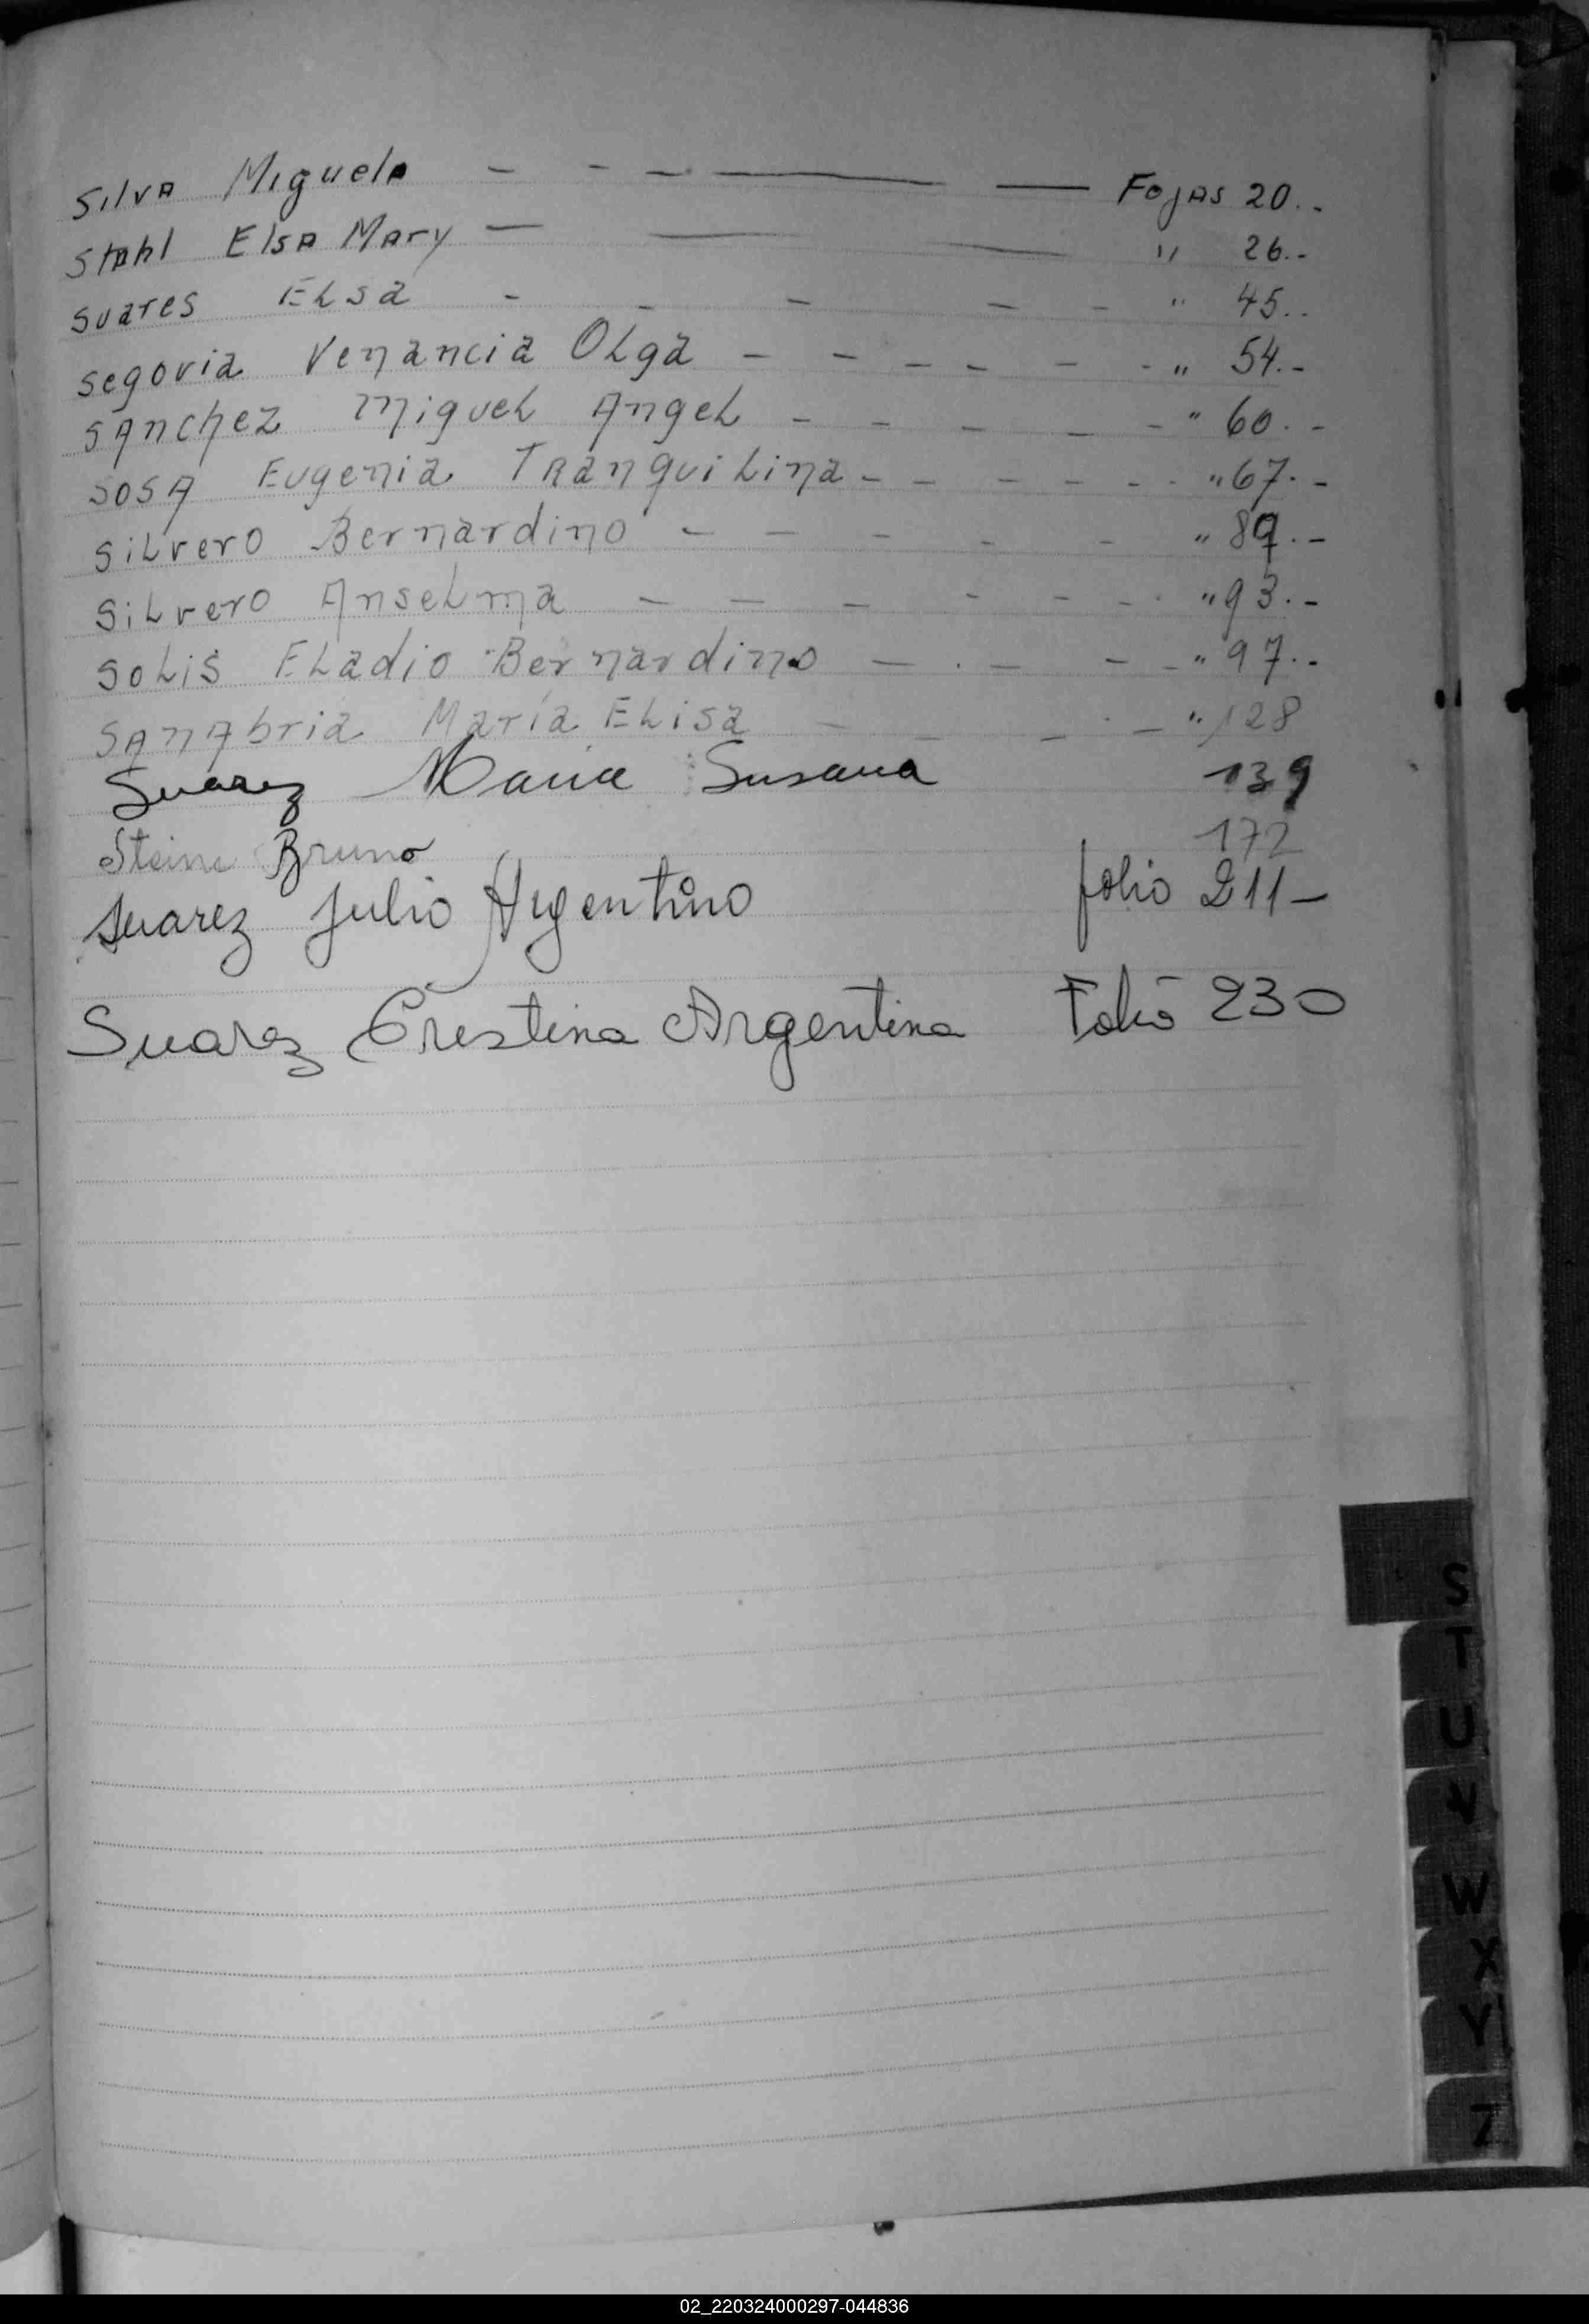 Silva Miguela - - - — — Fojas 20..
Stahl Elsa Mary — — — " 26.-
Suares Elsa - - - - - " 45..
Segovia Venancia Olga - - - - - - " 54.-
Sanchez Miguel Angel - - - - - " 60.-
Sosa Eugenia Tranquilina - - - - - - " 67.-
Silvero Bernardino - - - - - " 89.-
Silvero Anselma - - - - - - " 93.-
Solis Eladio Bernardino - . - - - " 97.-
Sanabria María Elisa - - - - " 128
Suarez Maria Susana 139
Bruno 172
Suarez Julio Argentino folio 211-
Suarez Crestina Argentina Folio 230
S
T
U
V
W
X
Y
Z
02_220324000297-044836